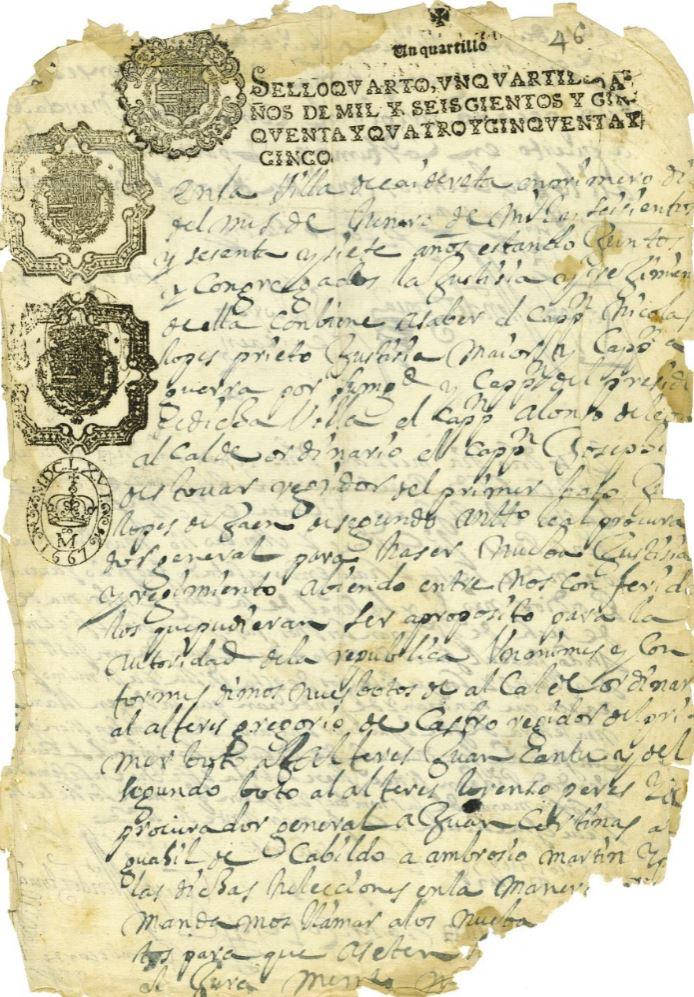 46
Un quartillo
SELLO QVARTO, VN QVARTILLO, A
ÑOS DE MIL Y SEISCIENTOS Y CIN
QVENTA Y QVATRO Y CINQVENTA Y
CINCO
en la Villa de caidereta en primero di
del mes de henero de mil y seisientos
y sesenta y siete años estando Juntos
y Congregados la Justisia y Regimien
de ella conbiene asaber el Capp.n nicolas
lopes prieto Justisia maior y Capp.n a
guerra por su mg.d y Capp.n del presidi
de dicha Villa el capp.n alonso de leon
alcalde ordinario el capp.n Joseph
de touar regidor del primer boto
lopes de Jaen de segundo real procura
dor general para haser nueba Justisia
y regimiento abiendo entre nos conferido
los que pudieran ser aproposito para la
autoridad de la republica Unanimes y Con
formes dimos nuesbotos de alcalde ordinar
al alferes gregorio de Castro regidor del pri
mer boto al alferes Juan cantu y del
segundo boto al alferes lorenso peres
procurador general a Juan Cortinas al
guasil de Cabildo a ambrosio martin y
las dichas helecciones en la maner
mandamos llamar a los nueba
tos para que aseten
el Jura mento
MDCLXVI
M
1667